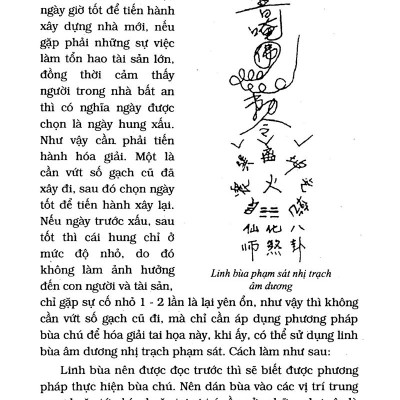 ngày giờ tốt để tiến hành
xây dựng nhà mới, nếu
gặp phải những sự việc
làm tổn hao tài sản lớn,
đồng thời cảm thấy
người trong nhà bất an
thì có nghĩa ngày được
chọn là ngày hung xấu.
Như vậy cần phải tiến
hành hóa giải. Một là
cần vứt số gạch cũ đã
xây đi, sau đó chọn ngày
tốt để tiến hành xây lại.
Nếu ngày trước xấu, sau
tốt thì cái hung chỉ ở
mức độ nhỏ, do đó
không làm ảnh hưởng
đến con người và tài sản,
佛
令
火
八
仙 化 卦
師 煞
Linh bùa phạm sát nhị trạch
âm dương
chỉ gặp sự cố nhỏ 1 - 2 lần là lại yên ổn, như vậy thì không
cần vứt số gạch cũ đi, mà chỉ cần áp dụng phương pháp
bùa chú để hóa giải tai họa này, khi ấy, có thể sử dụng linh
bùa âm dương nhị trạch phạm sát. Cách làm như sau:
Linh bùa nên được đọc trước thì sẽ biết được phương
pháp thực hiện bùa chú. Nên dán bùa vào các vị trí trung